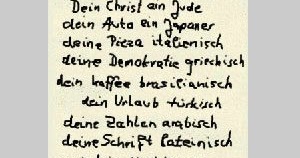 Dein Christ ein Jude
dein Auto ein Japaner
deine Pizza italienisch
deine Demokratie griechisch
dein Kaffee brasilianisch
dein Urlaub türkisch
deine Zahlen arabisch
deine Schrift lateinisch